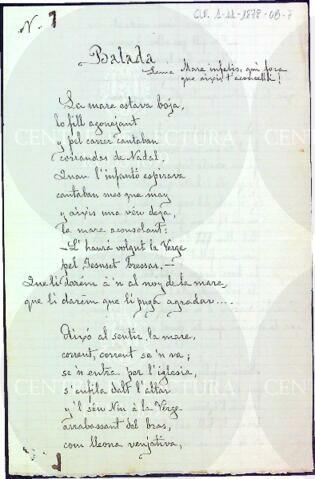 N. 7
C.L.F. 1-11-1878-UB-7
Balada
Lema Mare infelis, qui fora
que aixís t'aconsellés!
La mare estava boja,
lo fill agonejant
y pel carrer cantaban
corrandas de Nadal.
Quan l'infantó espirava
cantaban mes que may
y aixis una véu deya,
la mare aconsolant:
—L'haurá volgut la Verge
pel Jesuset bressar.—
Que li darém á'n al noy de la mare,
que li darém que li puga agradar....
Aixó al sentir, la mare,
corrent, corrent se'n va;
se'n entra per l'iglesia,
s'enfila dalt l'altar
y'l séu Nin á la Verge
arrabassant del bras,
com lleona venjativa,